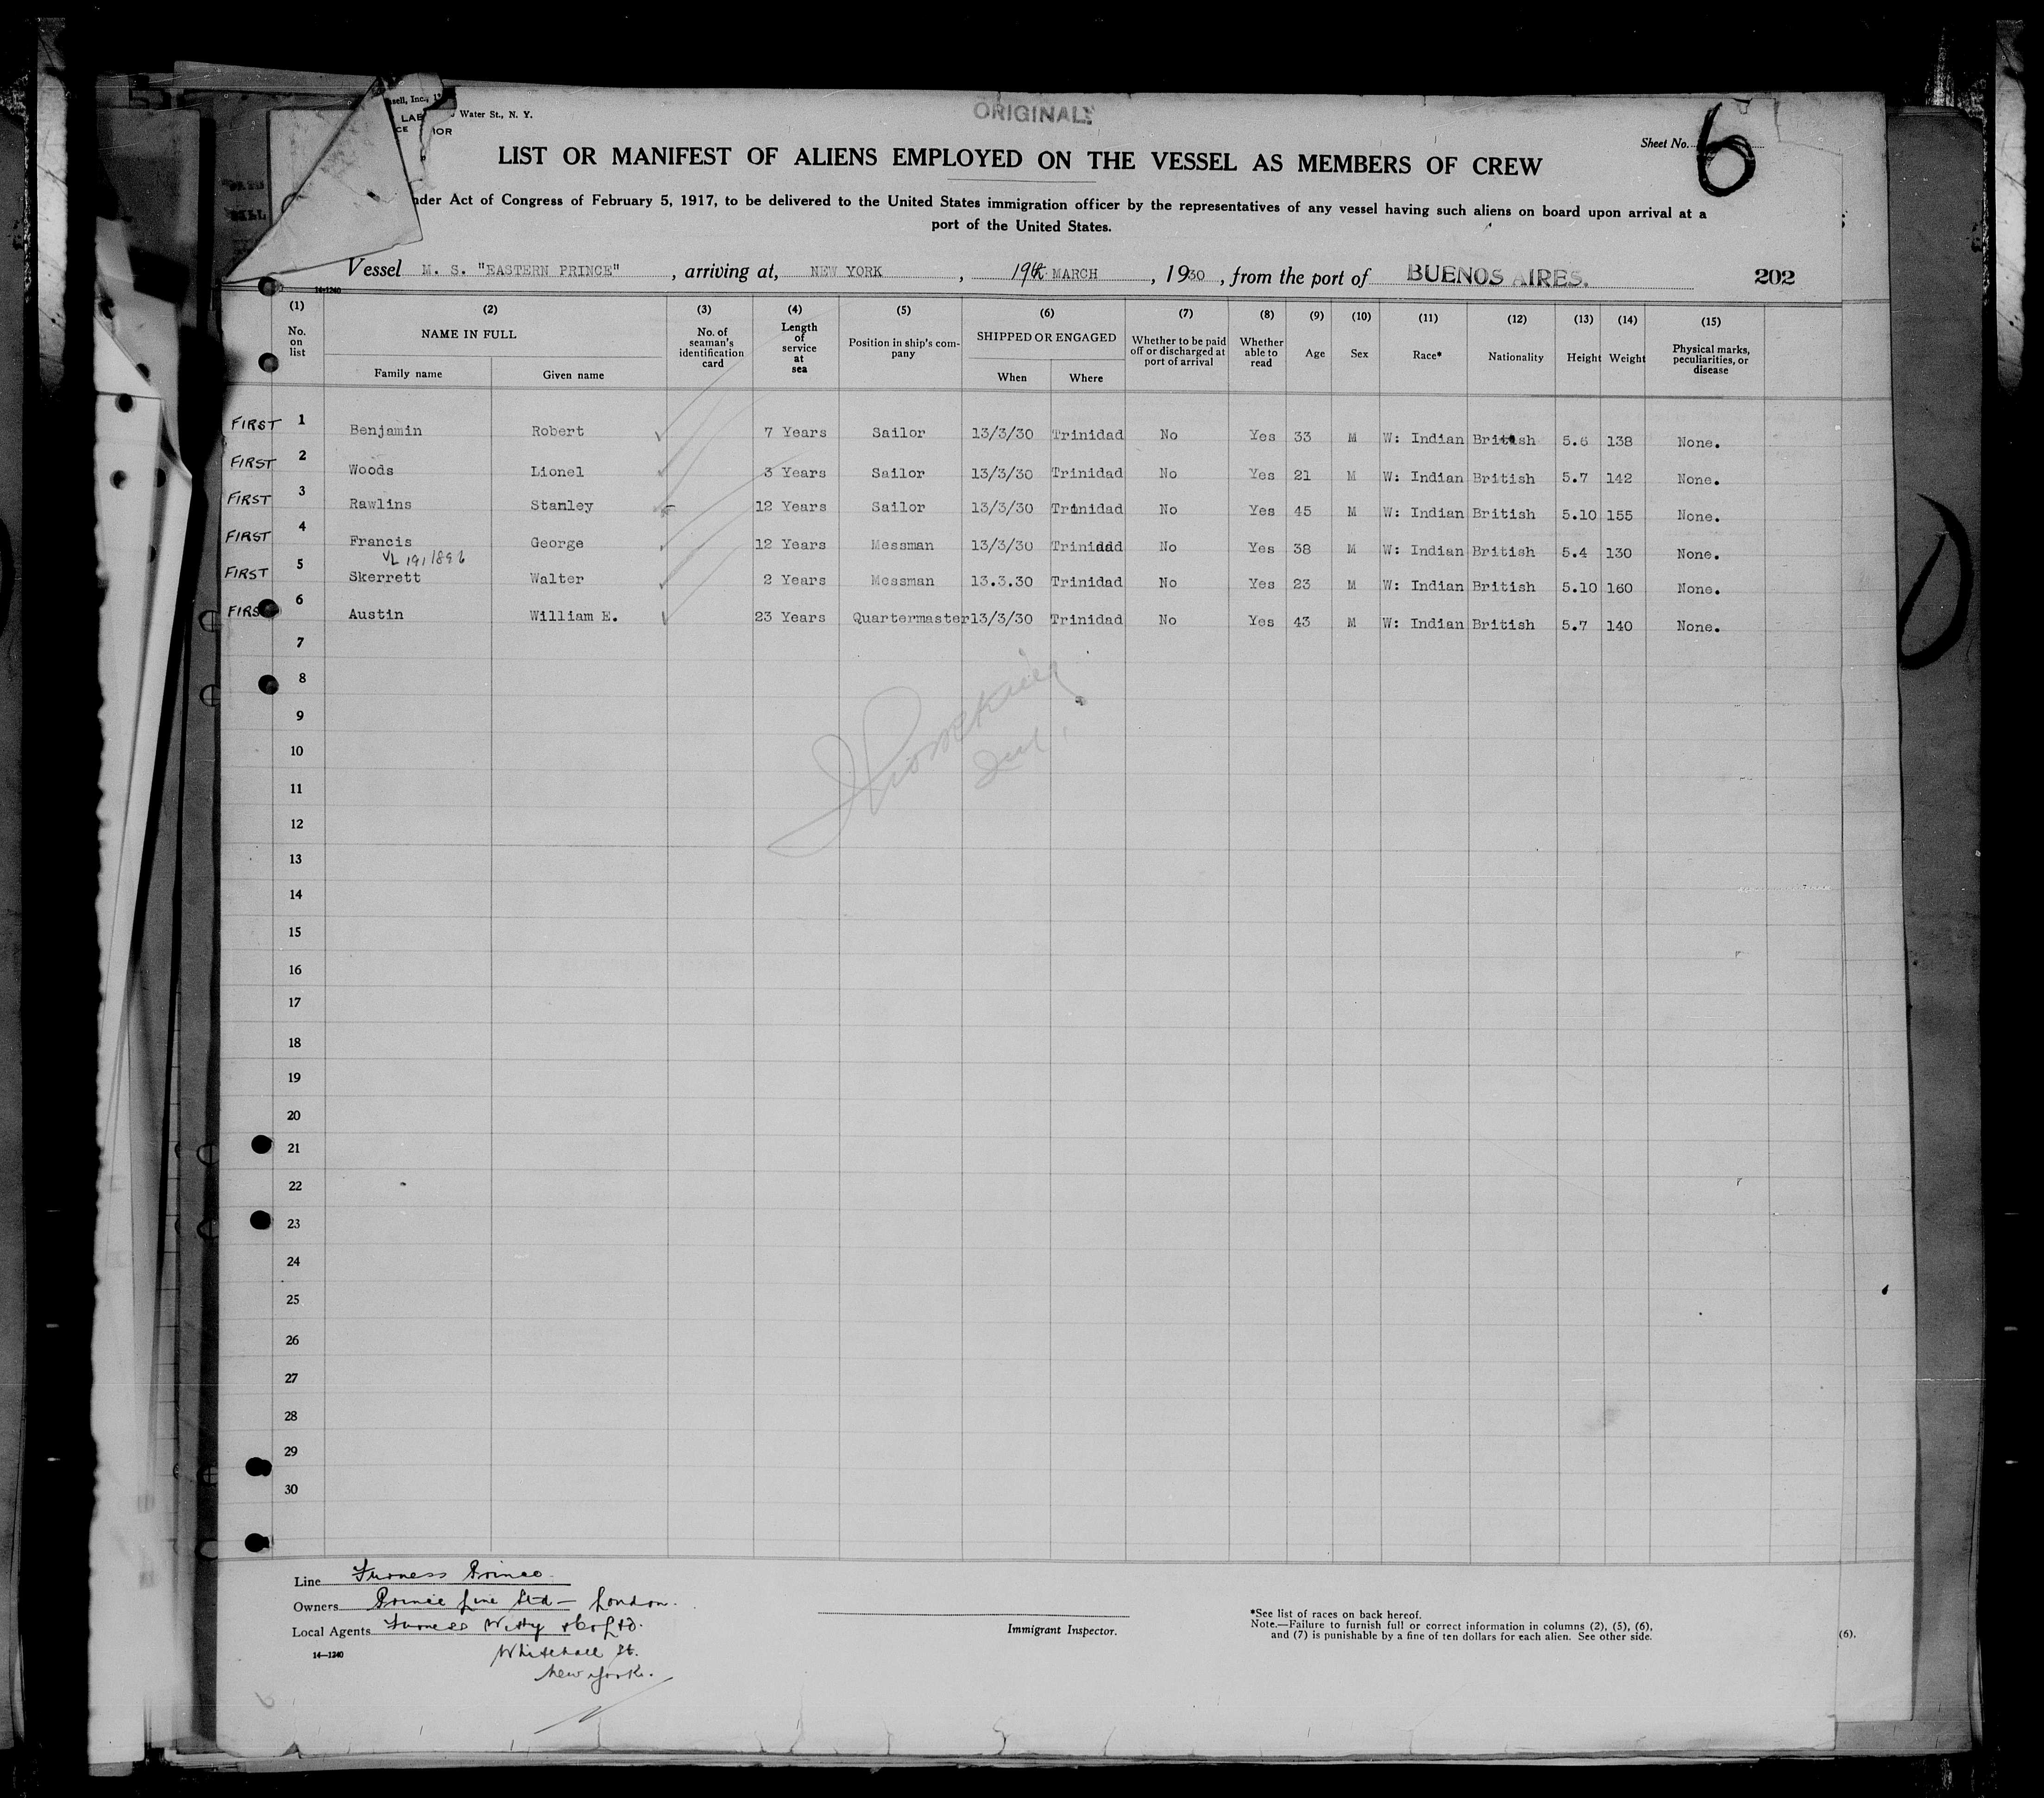 sell, Inc.,
LAB
Water St., N. Y.
CE
IOR
ORIGINAL
Sheet No. 6
LIST OR MANIFEST OF ALIENS EMPLOYED ON THE VESSEL AS MEMBERS OF CREW
nder Act of Congress of February 5, 1917, to be delivered to the United States immigration officer by the representatives of any vessel having such aliens on board upon arrival at a
port of the United States.
Vessel M. S. "EASTERN PRINCE", arriving at, NEW YORK, 19th MARCH, 1930, from the port of BUENOS AIRES. 202
14-1240
(1) (2) (3) (4) (5) (6) (7) (8) (9) (10) (11) (12) (13) (14) (15)
No. on list NAME IN FULL No. of seaman's identification card Length of service at sea Position in ship's company SHIPPED OR ENGAGED Whether to be paid off or discharged at port of arrival Whether able to read Age Sex Race* Nationality Height Weight Physical marks, peculiarities, or disease
Family name Given name When Where
FIRST 1 Benjamin Robert 7 Years Sailor 13/3/30 Trinidad No Yes 33 M W: Indian British 5.6 138 None.
FIRST 2 Woods Lionel 3 Years Sailor 13/3/30 Trinidad No Yes 21 M W: Indian British 5.7 142 None.
FIRST 3 Rawlins Stanley 12 Years Sailor 13/3/30 Trinidad No Yes 45 M W: Indian British 5.10 155 None.
FIRST 4 Francis George 12 Years Messman 13/3/30 Trinidad No Yes 38 M W: Indian British 5.4 130 None.
VL 191/896
FIRST 5 Skerrett Walter 2 Years Messman 13.3.30 Trinidad No Yes 23 M W: Indian British 5.10 160 None.
FIRST 6 Austin William E. 23 Years Quartermaster 13/3/30 Trinidad No Yes 43 M W: Indian British 5.7 140 None.
7
8
9
10
11
12
13
14
15
16
17
18
19
20
21
22
23
24
25
26
27
28
29
30
Line Furness Prince
Owners Prince Line Ltd - London.
Local Agents Furness Withy & Co Ltd.
Whitehall St.
New York.
14—1240
Immigrant Inspector.
*See list of races on back hereof.
Note.—Failure to furnish full or correct information in columns (2), (5), (6),
and (7) is punishable by a fine of ten dollars for each alien. See other side.
(6).